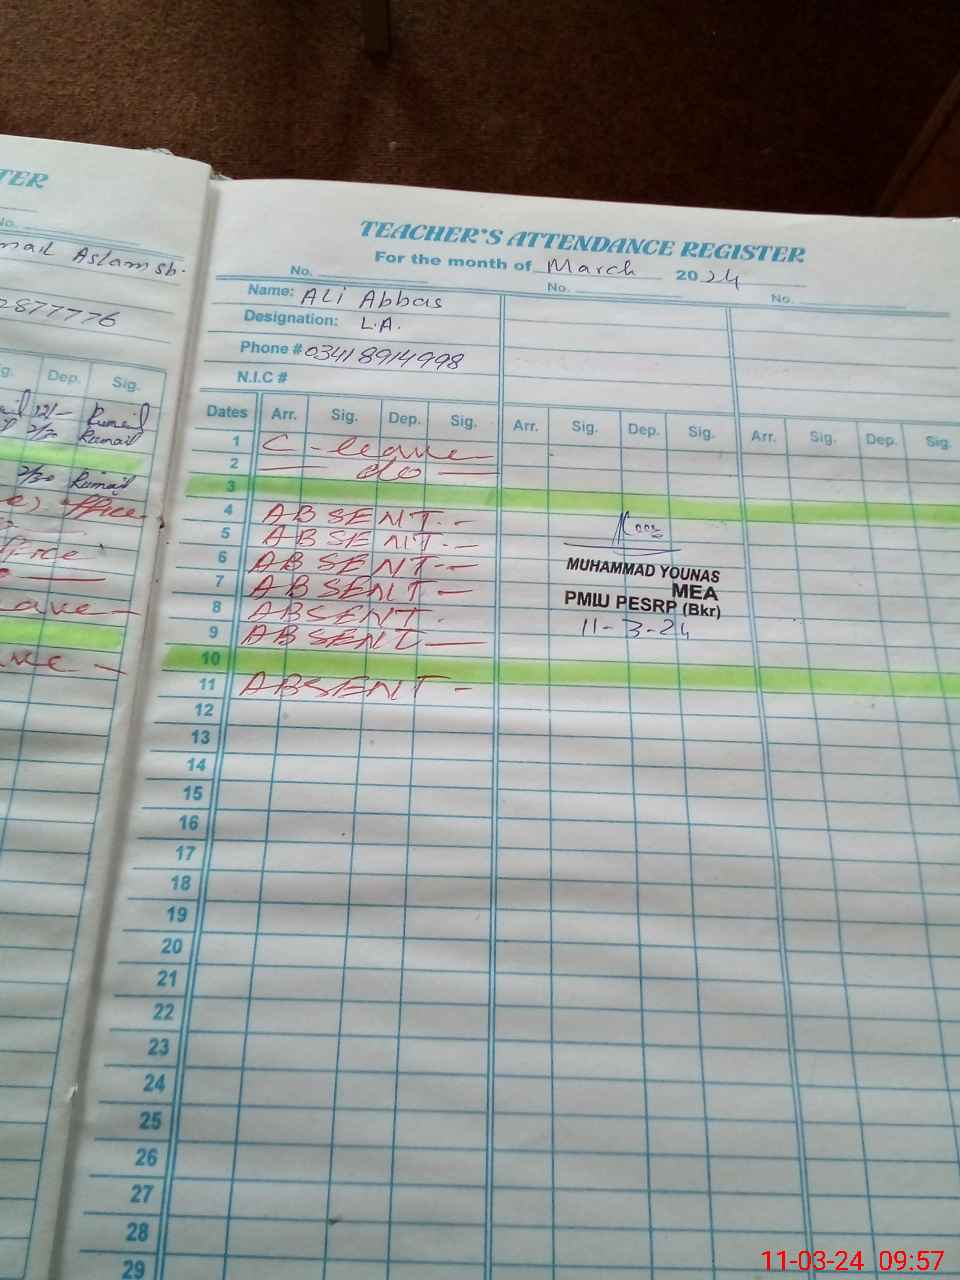 TER
No.
mail Aslam sb.
2877776
Sig. Dep. Sig.
12/- Rumail
2/30 Rumail
2/30 Rumail
office
office
Leave
TEACHER'S ATTENDANCE REGISTER
For the month of March 2024
No. No. No.
Name: Ali Abbas
Designation: L.A.
Phone # 03418914998
N.I.C #
Dates Arr. Sig. Dep. Sig. Arr. Sig. Dep. Sig. Arr. Sig. Dep. Sig.
1 C-leave
2 — do —
3
4 ABSENT.-
5 ABSENT.-
6 ABSENT.-
7 ABSENT -
8 ABSENT.
9 ABSENT —
10
11 ABSENT -
12
13
14
15
16
17
18
19
20
21
22
23
24
25
26
27
28
29
MUHAMMAD YOUNAS
MEA
PMIU PESRP (Bkr)
11-3-24
11-03-24 09:57